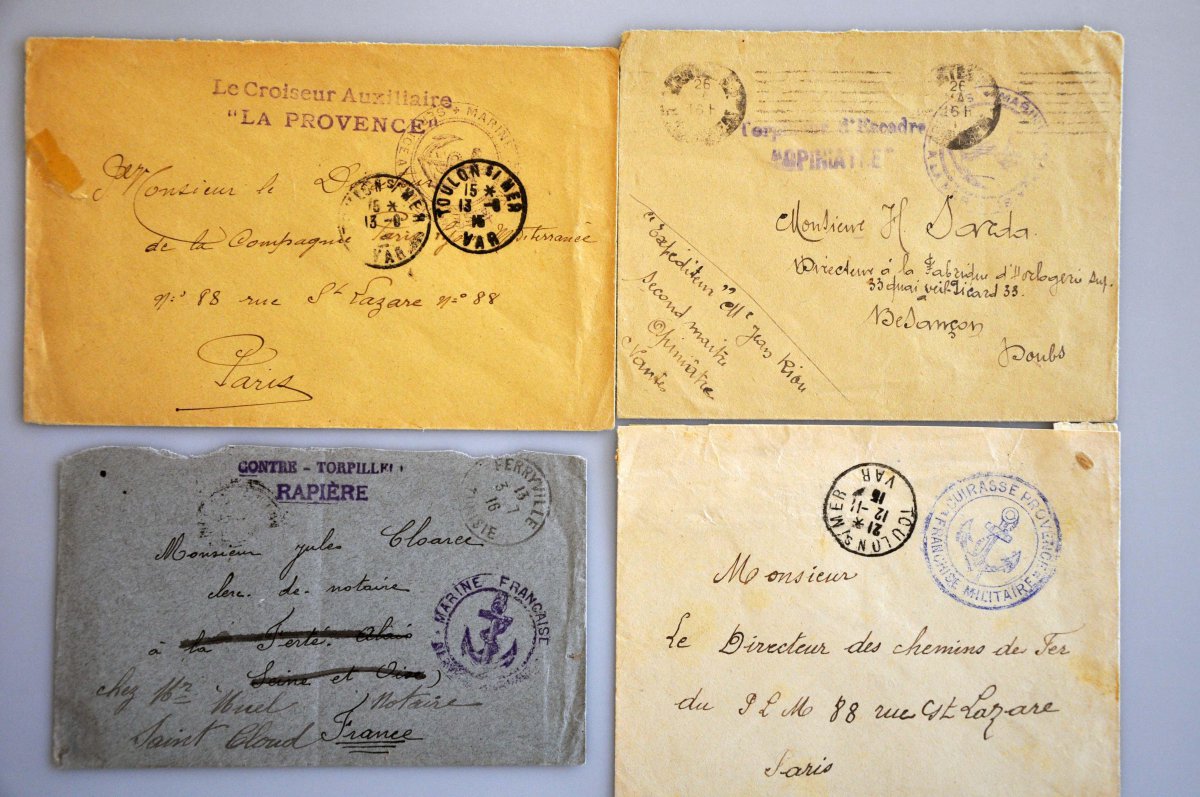 Le Croiseur Auxiliaire
"LA PROVENCE"
MARINE
TOULON S/ MER
15 *
13 -8
VAR
TOULON S/ MER
15 *
13 -8
16
VAR
Monsieur le
de la Compagnie Paris
n:o 88 rue St Lazare n:o 88
Paris
26
16 H
26
16 H
MARINE
d'Escadre
"OPINIATRE"
Monsieur H. Sarda
Directeur à la Fabrique d'Horlogerie Sup.
33 quai Veil-Picard 33.
à
Besançon
Doubs
"Expéditeur" Me Jean Riou
Second maître
Opiniâtre
Nantes
CONTRE - TORPILLEUR
RAPIÈRE
FERRYVILLE
13
3 -7
16
Monsieur Jules Cloarec
clerc de notaire
à la Ferté-Alais
Seine et Oise
chez Mr Huel (Notaire)
Saint Cloud France
MARINE FRANÇAISE
TOULON S/MER
21 *
12 -11
15
VAR
CUIRASSE PROVENCE
FRANCHISE MILITAIRE
Monsieur
Le Directeur des chemins de Fer
du P L M 88 rue St Lazare
Paris